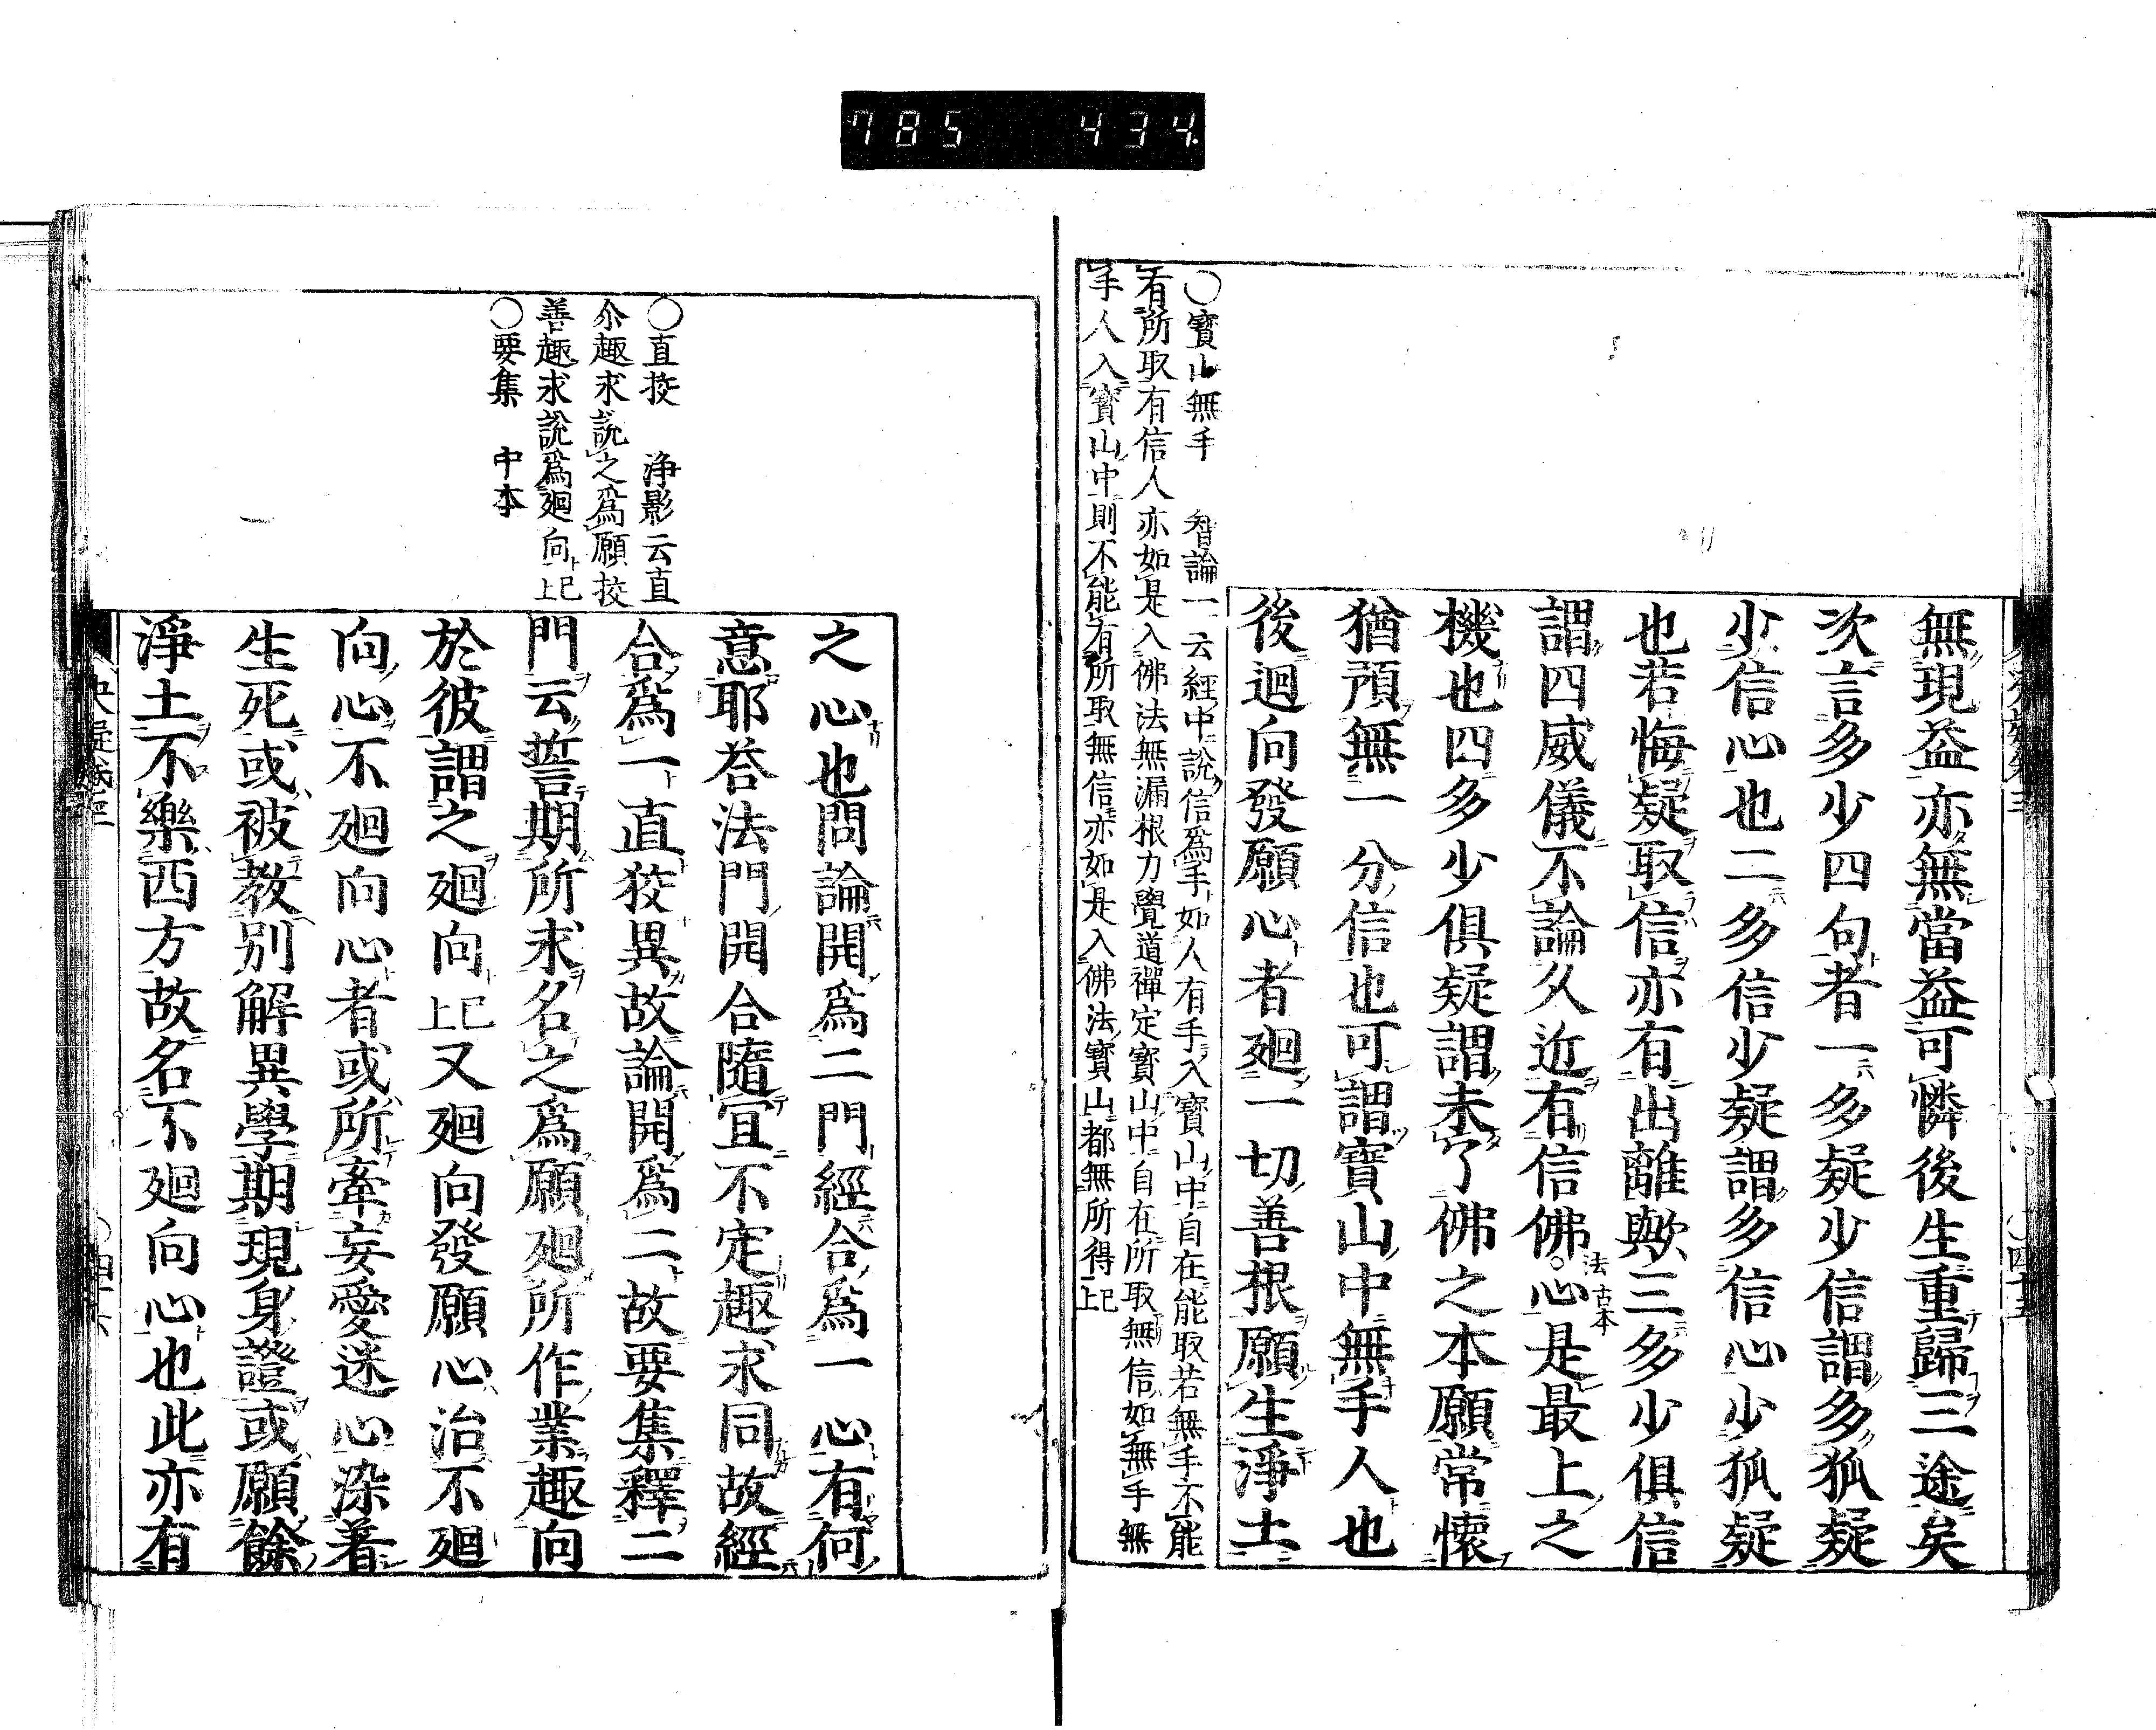 785 434
無現益亦無當益可憐後生重歸三途矣
次言多少四句者一多疑少信謂多狐疑
少信心也二多信少疑謂多信心少狐疑
也若悔疑取信亦有出離歟三多少俱信
謂四威儀不論久近有信佛心是最上之
法古本
機也四多少俱疑謂未了佛之本願常懷
猶預無一分信也可謂寶山中無手人也
後迴向發願心者廻一切善根願生淨土
○寶山無手 智論一云經中說信爲手如人有手入寶山中自在能取若無手不能
有所取有信人亦如是入佛法無漏根力覺道禪定寶山中自在所取無信如無手無
手人入寶山中則不能有所取無信亦如是入佛法寶山都無所得已上
○直挍 浄影云直
尒趣求說之爲願挍
善趣求說爲廻向已上
○要集 中本
之心也問論開爲二門經合爲一心有何
意耶荅法門開合隨宜不定趣求同故經
合爲一直挍異故論開爲二故要集釋二
門云誓期所求名之爲願廻所作業趣向
於彼謂之廻向已上又廻向發願心治不廻
向心不廻向心者或所牽妄愛迷心染着
生死或被教別解異學期現身證或願餘
淨土不樂西方故名不廻向心也此亦有